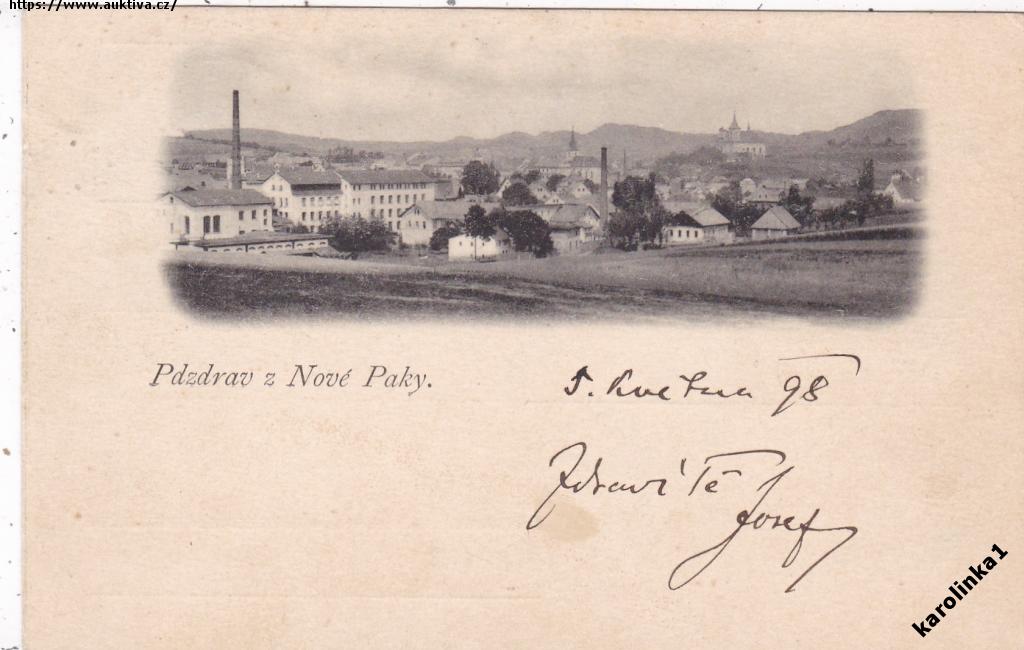 https://www.auktiva.cz/
Pdzdrav z Nové Paky.
5. Května 98
Zdraví Tě
Josef
karolinka1